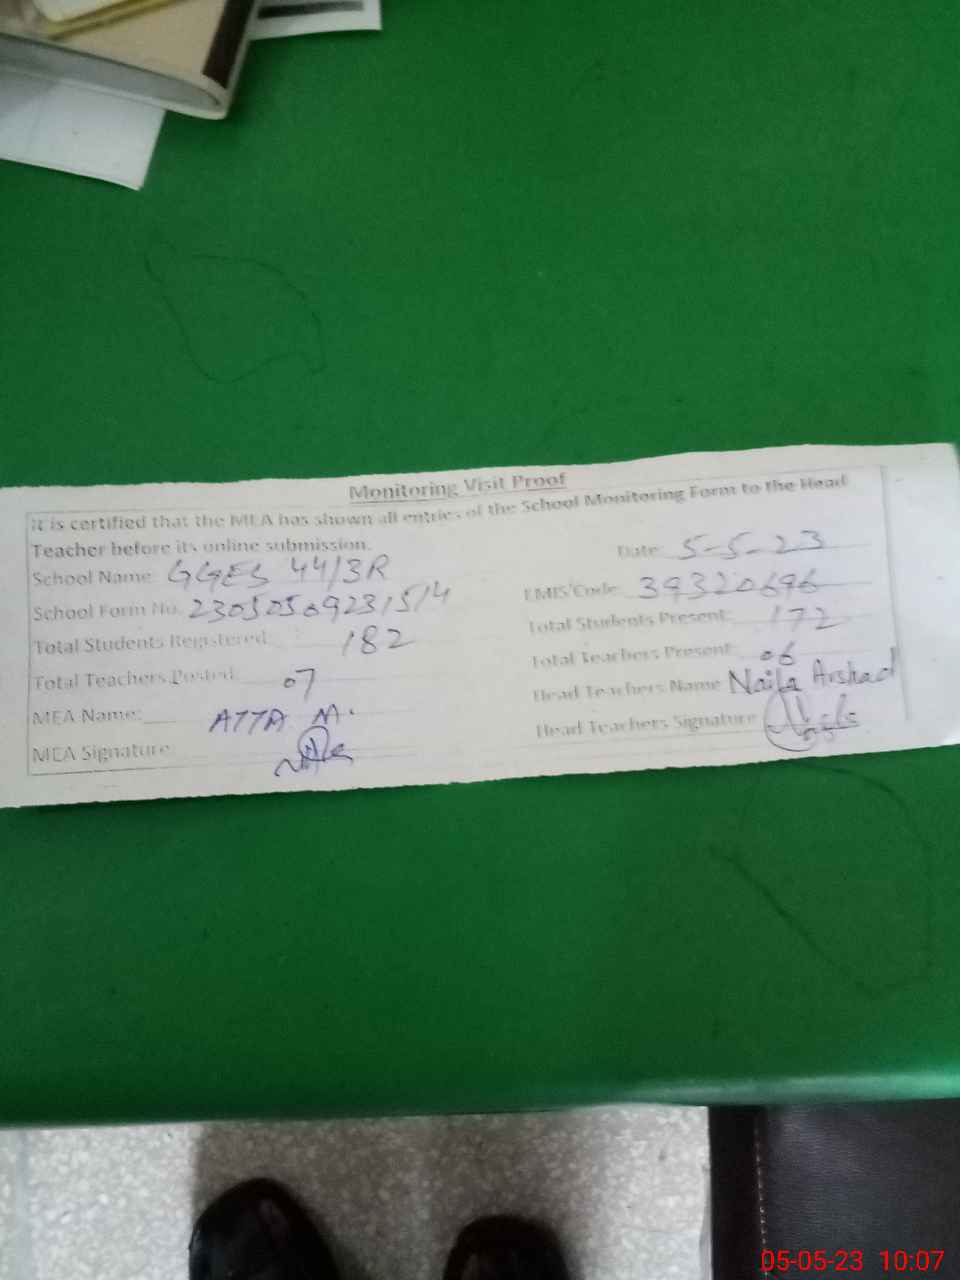 Monitoring Visit Proof
It is certified that the MEA has shown all entries of the School Monitoring Form to the Head
Teacher before its online submission.
Date 5-5-23
School Name: GGES 44/3R
EMIS Code 39320696
School Form No. 23050509231514
Total Students Present 172
Total Students Registered 182
Total Teachers Present 06
Total Teachers Posted 07
Head Teachers Name Naila Arshad
MEA Name: ATTA M.
Head Teachers Signature
MEA Signature
05-05-23 10:07